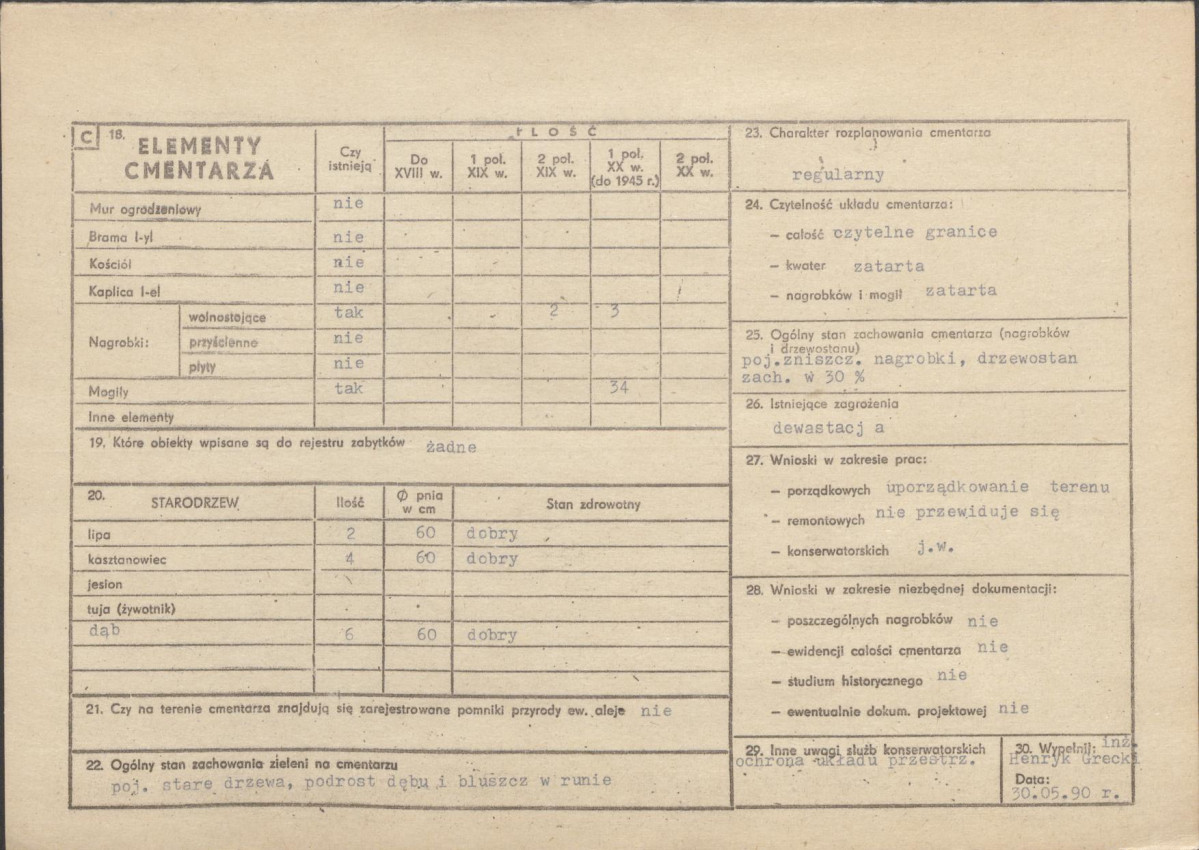 C 18. ELEMENTY CMENTARZA
Czy istnieją
ILOŚĆ
Do XVIII w.
1 poł. XIX w.
2 poł. XIX w.
1 poł. XX w. (do 1945 r.)
2 poł. XX w.
Mur ogrodzeniowy nie
Brama I-y/ nie
Kościół nie
Kaplica I-e/ nie
Nagrobki: wolnostojące tak 2 3
przyścienne nie
płyty nie
Mogiły tak 34
Inne elementy
19. Które obiekty wpisane są do rejestru zabytków żadne
20. STARODRZEW Ilość Ø pnia w cm Stan zdrowotny
lipa 2 60 dobry
kasztanowiec 4 60 dobry
jesion
tuja (żywotnik)
dąb 6 60 dobry
21. Czy na terenie cmentarza znajdują się zarejestrowane pomniki przyrody ew. aleje nie
22. Ogólny stan zachowania zieleni na cmentarzu
poj. stare drzewa, podrost dębu i bluszcz w runie
23. Charakter rozplanowania cmentarza
regularny
24. Czytelność układu cmentarza:
— całość czytelne granice
— kwater zatarta
— nagrobków i mogił zatarta
25. Ogólny stan zachowania cmentarza (nagrobków
i drzewostanu)
poj.zniszcz. nagrobki, drzewostan
zach. w 30 %
26. Istniejące zagrożenia
dewastacj a
27. Wnioski w zakresie prac:
— porządkowych uporządkowanie terenu
— remontowych nie przewiduje się
— konserwatorskich j.w.
28. Wnioski w zakresie niezbędnej dokumentacji:
— poszczególnych nagrobków nie
— ewidencji całości cmentarza nie
— studium historycznego nie
— ewentualnie dokum. projektowej nie
29. Inne uwagi służb konserwatorskich
ochrona układu przestrz.
30. Wypełnił: inż.
Henryk Grecki
Data:
30.05.90 r.